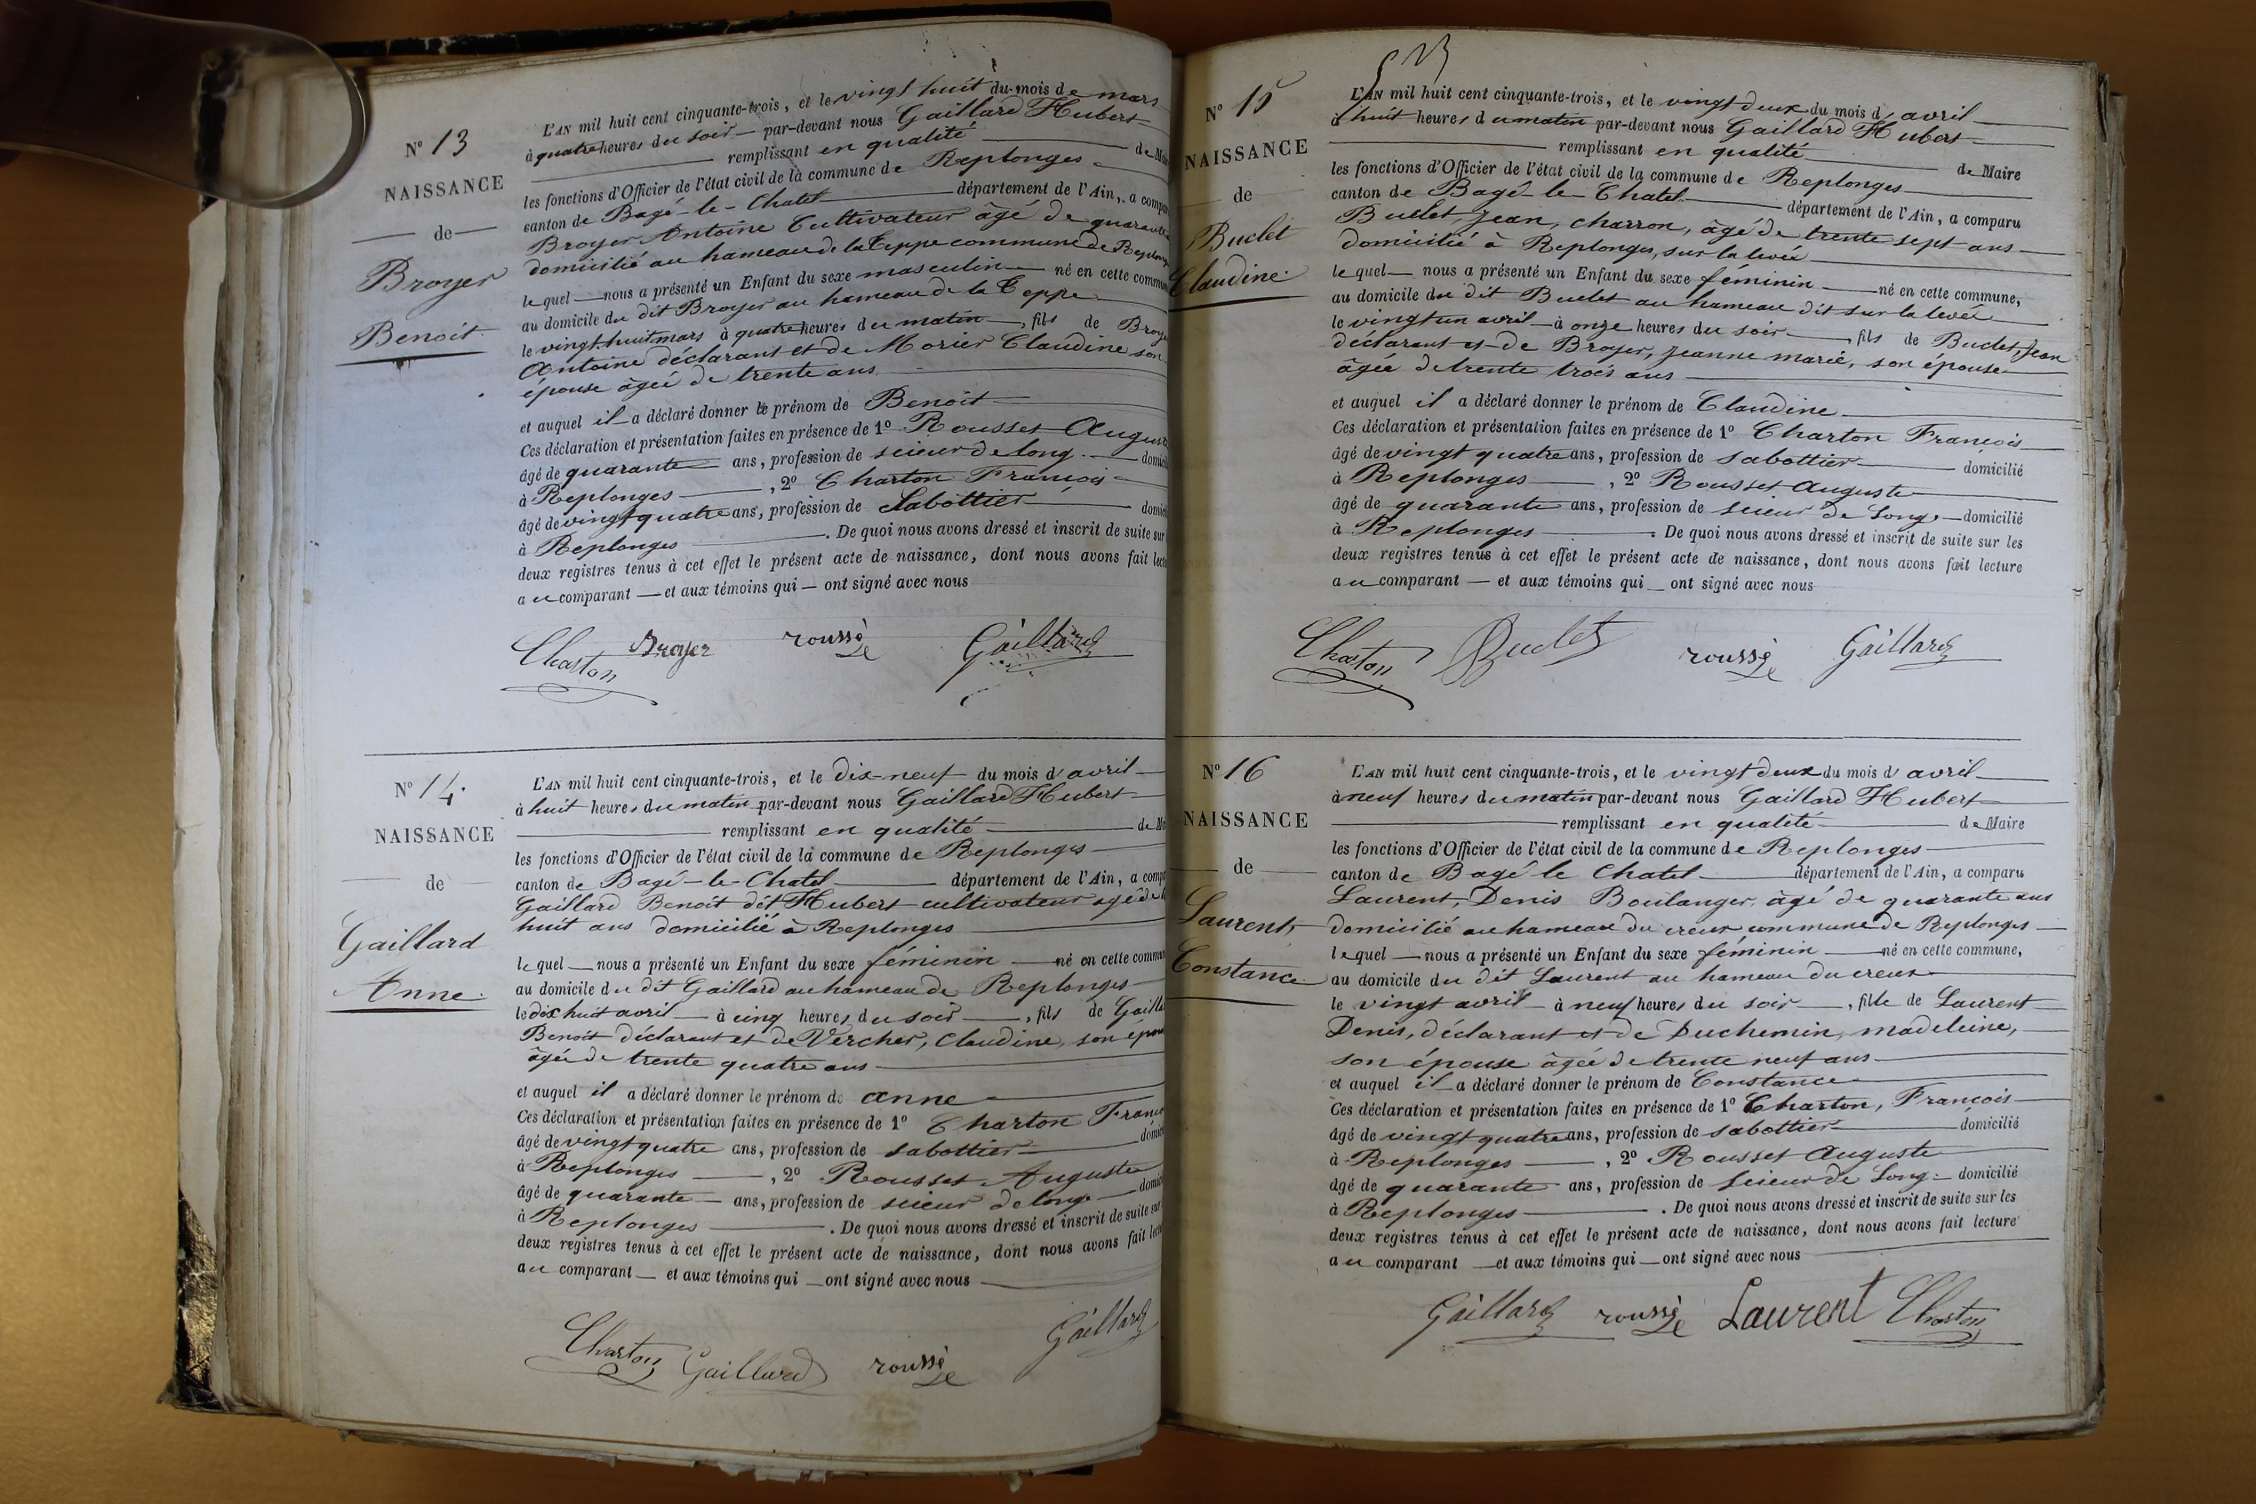 N° 13
NAISSANCE
de
Broyer
Benoit
L'AN mil huit cent cinquante-trois, et le vingt huit du mois de mars
à quatre heures du soir par-devant nous Gaillard Hubert
remplissant en qualité de Mai
les fonctions d'Officier de l'état civil de la commune de Replonges
canton de Bagé-le-Chatel département de l'Ain, a compa
Broyer Antoine Cultivateur âgé de quarante
domicilié au hameau de la Teppe commune de Replonges
lequel nous a présenté un Enfant du sexe masculin né en cette commune
au domicile du dit Broyer au hameau de la Teppe
le vingt-huit mars à quatre heures du matin, fils de Broyer
Antoine déclarant et de Morier Claudine son
épouse âgée de trente ans
et auquel il a déclaré donner le prénom de Benoît
Ces déclaration et présentation faites en présence de 1° Rousset Auguste
âgé de quarante ans, profession de scieur de long domicil
à Replonges, 2° Charton François
âgé de vingt quatre ans, profession de Sabottier domici
à Replonges. De quoi nous avons dressé et inscrit de suite sur
deux registres tenus à cet effet le présent acte de naissance, dont nous avons fait lectu
au comparant et aux témoins qui ont signé avec nous
Charton Broyer roussè Gaillard
N° 14.
NAISSANCE
de
Gaillard
Anne.
L'AN mil huit cent cinquante-trois, et le dix-neuf du mois d'avril
à huit heures du matin par-devant nous Gaillard Hubert
remplissant en qualité de Ma
les fonctions d'Officier de l'état civil de la commune de Replonges
canton de Bagé-le-Chatel département de l'Ain, a compa
Gaillard Benoit dit Hubert cultivateur agé de
huit ans domicilié à Replonges
lequel nous a présenté un Enfant du sexe féminin né en cette commun
au domicile du dit Gaillard au hameau de Replonges
le dix huit avril à cinq heures du soir, fils de Gailla
Benoit déclarant et de Vercher, Claudine, son épou
âgée de trente quatre ans
et auquel il a déclaré donner le prénom de anne
Ces déclaration et présentation faites en présence de 1° Charton Franço
âgé de vingt quatre ans, profession de sabottier domici
à Replonges, 2° Rousset Auguste
âgé de quarante ans, profession de scieur de longe domici
à Replonges. De quoi nous avons dressé et inscrit de suite sur
deux registres tenus à cet effet le présent acte de naissance, dont nous avons fait lectu
au comparant et aux témoins qui ont signé avec nous
Charton Gaillard roussè Gaillard
N° 15
NAISSANCE
de
Buclet
Claudine.
L'AN mil huit cent cinquante-trois, et le vingt deux du mois d'avril
à huit heures du matin par-devant nous Gaillard Hubert
remplissant en qualité de Maire
les fonctions d'Officier de l'état civil de la commune de Replonges
canton de Bagé-le-Chatel département de l'Ain, a comparu
Buclet, Jean, charron, âgé de trente sept ans
domicilié à Replonges, sur la levée
lequel nous a présenté un Enfant du sexe féminin né en cette commune,
au domicile du dit Buclet au hameau dit sur la levée
le vingt un avril à onze heures du soir, fils de Buclet, Jean
déclarant et de Broyer, Jeanne marie, son épouse
âgée de trente trois ans
et auquel il a déclaré donner le prénom de Claudine
Ces déclaration et présentation faites en présence de 1° Charton François
âgé de vingt quatre ans, profession de sabottier domicilié
à Replonges, 2° Rousset Auguste
âgé de quarante ans, profession de scieur de Long domicilié
à Replonges. De quoi nous avons dressé et inscrit de suite sur les
deux registres tenus à cet effet le présent acte de naissance, dont nous avons fait lecture
au comparant et aux témoins qui ont signé avec nous
Charton Buclet roussè Gaillard
N° 16
NAISSANCE
de
Laurent,
Constance
L'AN mil huit cent cinquante-trois, et le vingt deux du mois d'avril
à neuf heures du matin par-devant nous Gaillard Hubert
remplissant en qualité de Maire
les fonctions d'Officier de l'état civil de la commune de Replonges
canton de Bagé le Chatel département de l'Ain, a comparu
Laurent, Denis Boulanger, âgé de quarante ans
domicilié au hameau du creux commune de Replonges
lequel nous a présenté un Enfant du sexe féminin né en cette commune,
au domicile du dit Laurent au hameau du creux
le vingt avril à neuf heures du soir, fille de Laurent
Denis, déclarant et de Duchemin, madeleine,
son épouse âgée de trente neuf ans
et auquel il a déclaré donner le prénom de Constance
Ces déclaration et présentation faites en présence de 1° Charton, François
âgé de vingt quatre ans, profession de sabottier domicilié
à Replonges, 2° Rousset Auguste
âgé de quarante ans, profession de scieur de Long domicilié
à Replonges. De quoi nous avons dressé et inscrit de suite sur les
deux registres tenus à cet effet le présent acte de naissance, dont nous avons fait lecture
au comparant et aux témoins qui ont signé avec nous
Gaillard roussè Laurent Charton